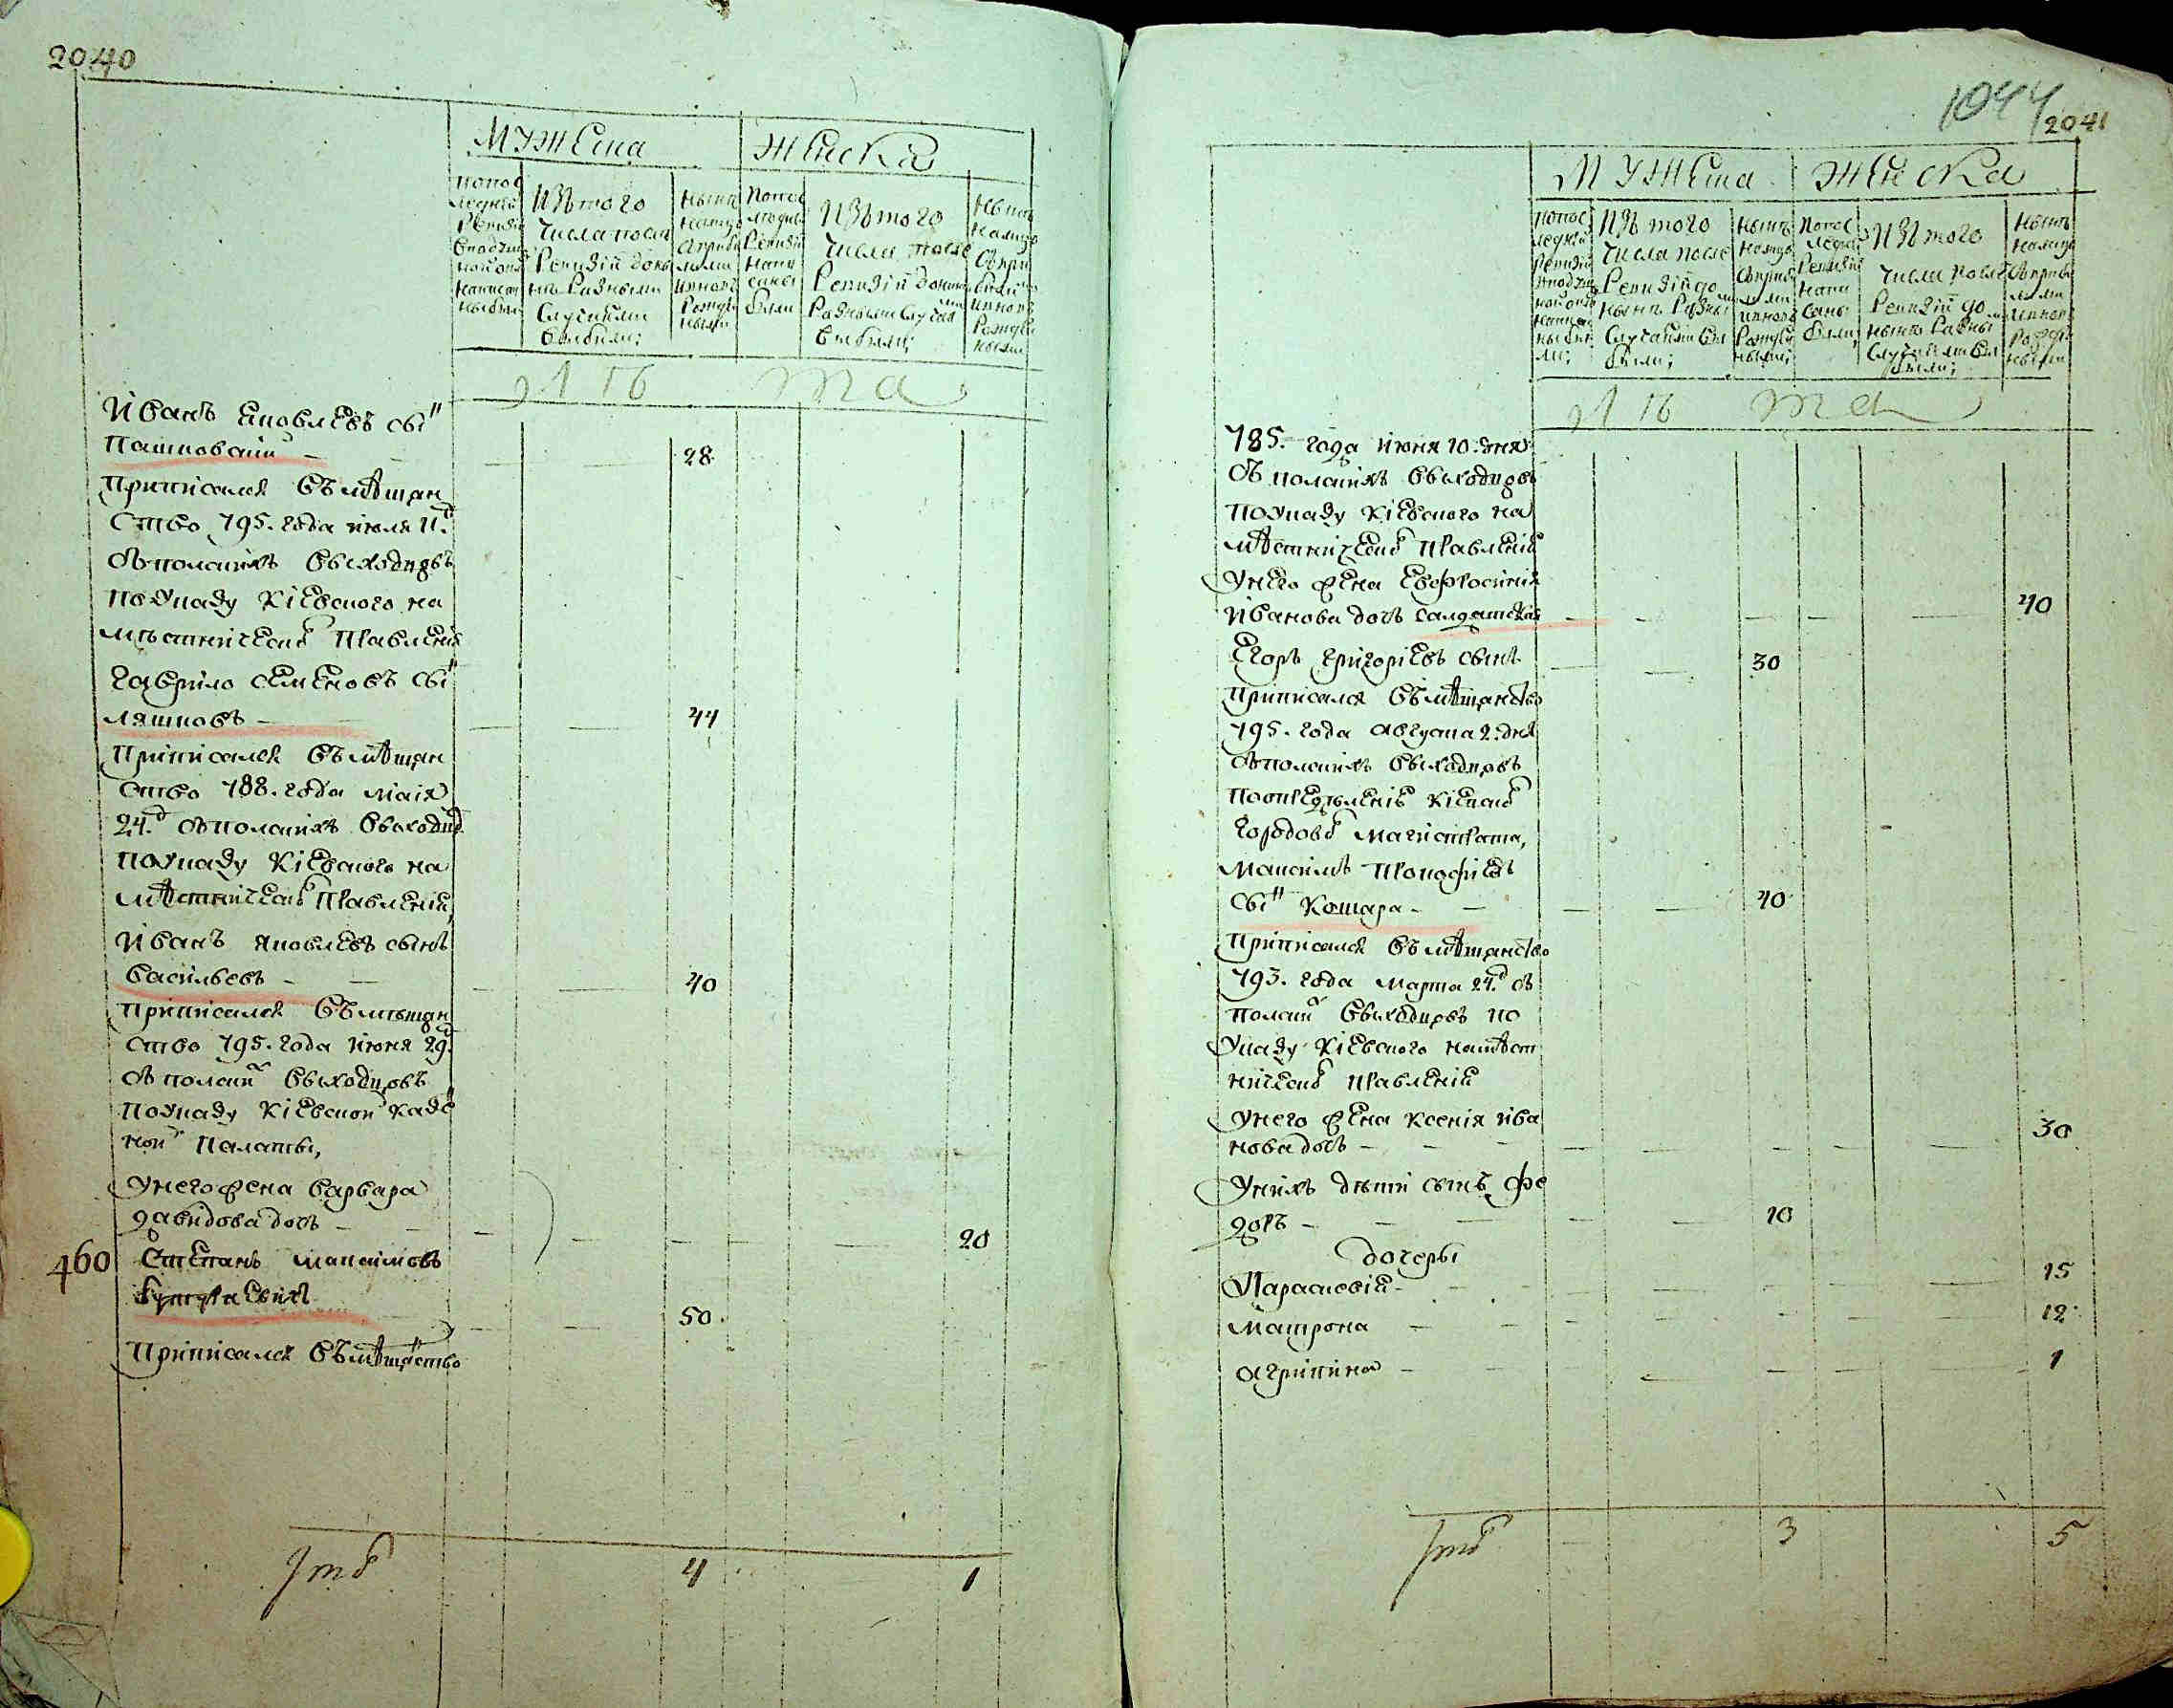 2040
Мужеска
Женска
По пос
ледней
Ревизіи
Написан
ны были
Изъ того
числа после
Ревизіи до ны
нѣ разными
случаями
выбыли;
Нынѣ
налицо
рожде
ными
По пос
ледней
Ревизіи
напи
саны
были
Изъ того
числа после
Ревизіи до нынѣ
разными случая
выбыли;
Нынѣ
налицо
рожде
ными
Лѣта
Иванъ Яковлевъ сы͏нъ
Пашковскій 28
приписался въ мѣщан
ство 795. года июля 11.д
съ полскихъ выходцовъ
по указу Кіевского на
мѣстническо Правленія
Гаврило Семеновъ сынъ
Ляшковъ 44
Приписался въ мѣщан
ство 788. года маія
24.д съ полскихъ выходцо
по указу Кіевского на
мѣстническо Правленія,
Иванъ Яковлевъ сынъ
Васильевъ 40
приписался въ мѣщан
ство 795. года июня 29.
съ полски выходцовъ
по указу Кіевской казе
ной Палаты,
у него жена Варвара
Давидова дочь 20
460 Степанъ Максимовъ
сынъ 50
Приписался въ мѣщанство
Ито 4 1
1044
2041
Мужеска
Женска
По пос
ледней
Ревизіи
написан
ны бы
ли;
Изъ того
числа после
Ревизіи до
нынѣ разны
случаями вы
были;
Нынѣ
налицо
рожде
ными;
По пос
ледней
Ревизіи
напи
саны
были,
Изъ того
числа после
Ревизіи до
нынѣ разны
случаями вы
были;
Нынѣ
налицо
с прибы
лыми
Лѣта
785. года июня 10. дня
съ полскихъ выходцовъ
по указу Кіевского на
мѣстническо Правленія
у него жена Евфросинія
Иванова дочь Салдатская 40
Егоръ Григоріевъ сынъ 30
приписался въ мѣщанство
795. года августа 2. дня
съ полскихъ выходцовъ
по опредѣленію Кіевско
городово магистрата,
Максимъ Прокофіевъ
сынъ Кошара 40
Приписался въ мѣщанство
793. года марта 24.д съ
полски выходцовъ по
указу Кіевского намѣст
ническо Правленія
у него жена Ксенія Ива
нова дочь 30
у нихъ дѣти сынъ Фе
доръ 10
дочеры
Параскевія 15
Матрона 12
Агрипина 1
Ито 3 5